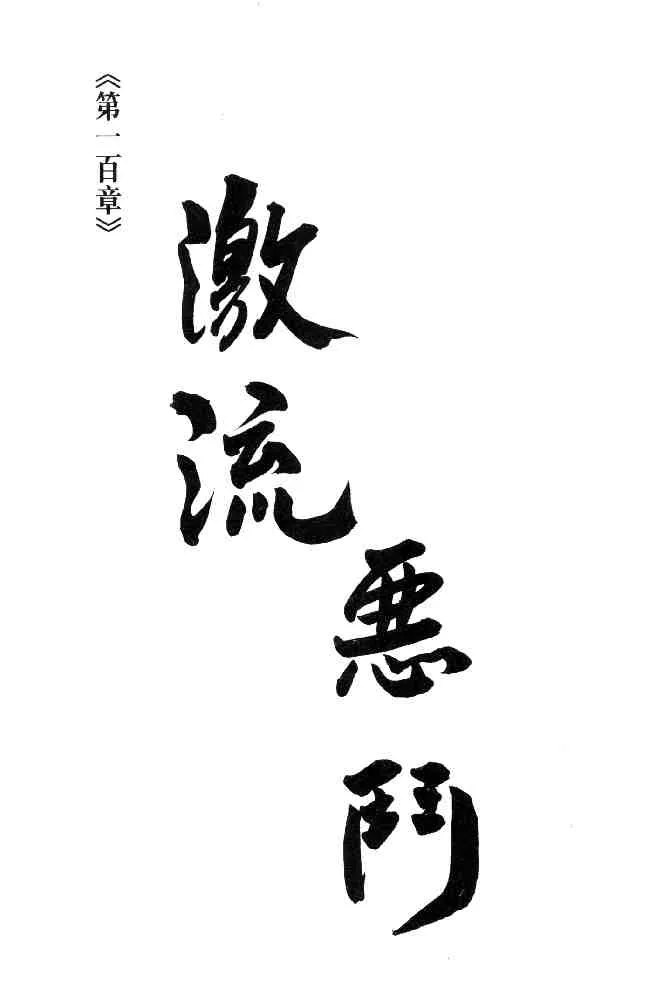 《第一百章》
激流
悪鬥